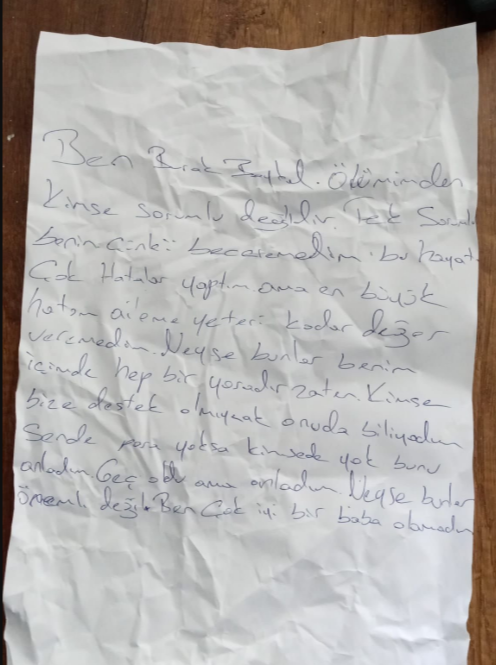 Ben Burak Baykal. Ölümümden
Kimse sorumlu değildir. Tek Soruml
benim çünkü beceremedim bu hayat
Çok Hatalar yaptım ama en büyük
hatam aileme yeteri kadar değer
veremedim. Neyse bunlar benim
içimde hep bir yaradır zaten. Kimse
bize destek olmıycak onuda biliyodum
Sende para yoksa kimsede yok bunu
anladım. Geç oldu ama anladım. Neyse bunlar
Önemli değil. Ben Çok iyi bir baba olamadım